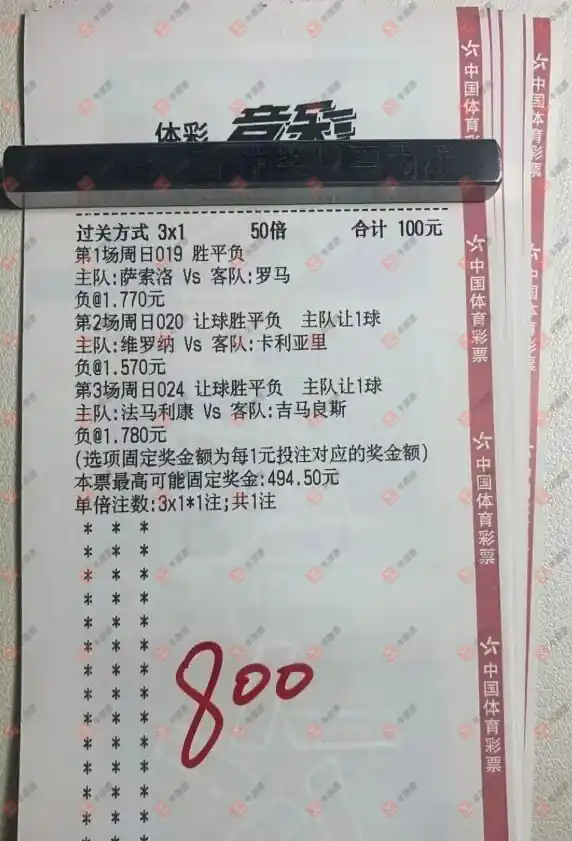 体彩 竞彩
过关方式 3x1 50倍 合计 100元
第1场周日019 胜平负
主队:萨索洛 Vs 客队:罗马
负@1.770元
第2场周日020 让球胜平负 主队让1球
主队:维罗纳 Vs 客队:卡利亚里
负@1.570元
第3场周日024 让球胜平负 主队让1球
主队:法马利康 Vs 客队:吉马良斯
负@1.780元
(选项固定奖金额为每1元投注对应的奖金额)
本票最高可能固定奖金:494.50元
单倍注数:3x1*1注;共1注
* * *
* * *
* * *
* * *
* * *
* * *
* * *
* * *
* * *
* * *
* * *
* * *
* * *
* * *
800
中国体育彩票
中国体育彩票
中国体育彩票
中国体育彩票
中国体育彩票